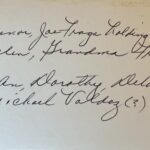 nor, Joe Trage Holding
, Grandma
an, Dorothy, Del
Michael Valdoz (?)